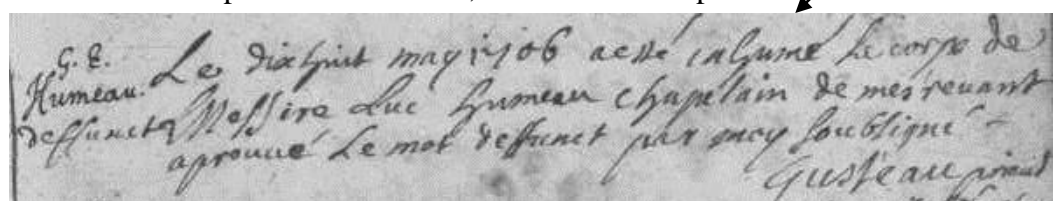 G. E.
Humeau. Le dixhuit may 1706 a esté inhumé Le corps de
deffunct Messire Luc humeau chapelain de mesrevant
aprouvé Le mot deffunct par moy soubsigné
Gusteau